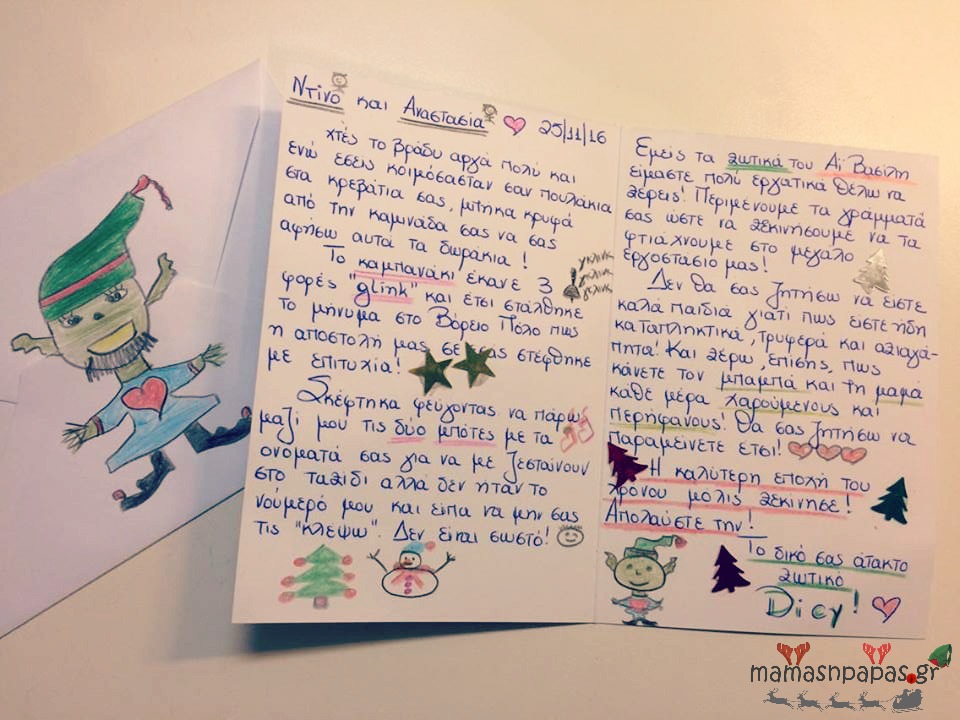 Ντίνο και Αναστασία 25/11/16
χτές το βράδυ αργά πολύ και
ενώ εσείς κοιμόσασταν σαν πουλάκια
στα κρεβάτια σας, μπήκα κρυφά
από την καμινάδα σας να σας
αφήσω αυτά τα δωράκια!
Το καμπανάκι έκανε 3
γκλινκ
γκλινκ
γκλινκ
φορές "glink" και έτσι στάλθηκε
το μήνυμα στο Βόρειο Πόλο πως
η αποστολή μας σε σας στέφθηκε
με επιτυχία!
Σκέφτηκα φεύγοντας να πάρω
μαζί μου τις δύο μπότες με τα
ονοματά σας για να με ζεσταίνουν
στο ταξίδι αλλά δεν ήταν το
νούμερό μου και είπα να μην σας
τις "κλέψω". Δεν είναι σωστό!
Εμείς τα ξωτικά του Αϊ Βασίλη
είμαστε πολύ εργατικά θέλω να
ξέρεις! Περιμένουμε τα γράμματά
σας ώστε να ξεκινήσουμε να τα
φτιάχνουμε στο μεγάλο
εργοστάσιο μας!
Δεν θα σας ζητήσω να είστε
καλά παιδιά γιατί πως είστε ήδη
καταπληκτικά, τρυφερά και αξιαγά-
πητα! Και ξέρω, επίσης, πως
κάνετε τον μπαμπά και τη μαμά
κάθε μέρα χαρούμενους και
περήφανους! Θα σας ζητήσω να
παραμείνετε έτσι!
Η καλύτερη εποχή του
χρόνου μόλις ξεκίνησε!
Απολαύστε την!
Το δικό σας άτακτο
ξωτικό
Dicy!
mamashpapas.gr